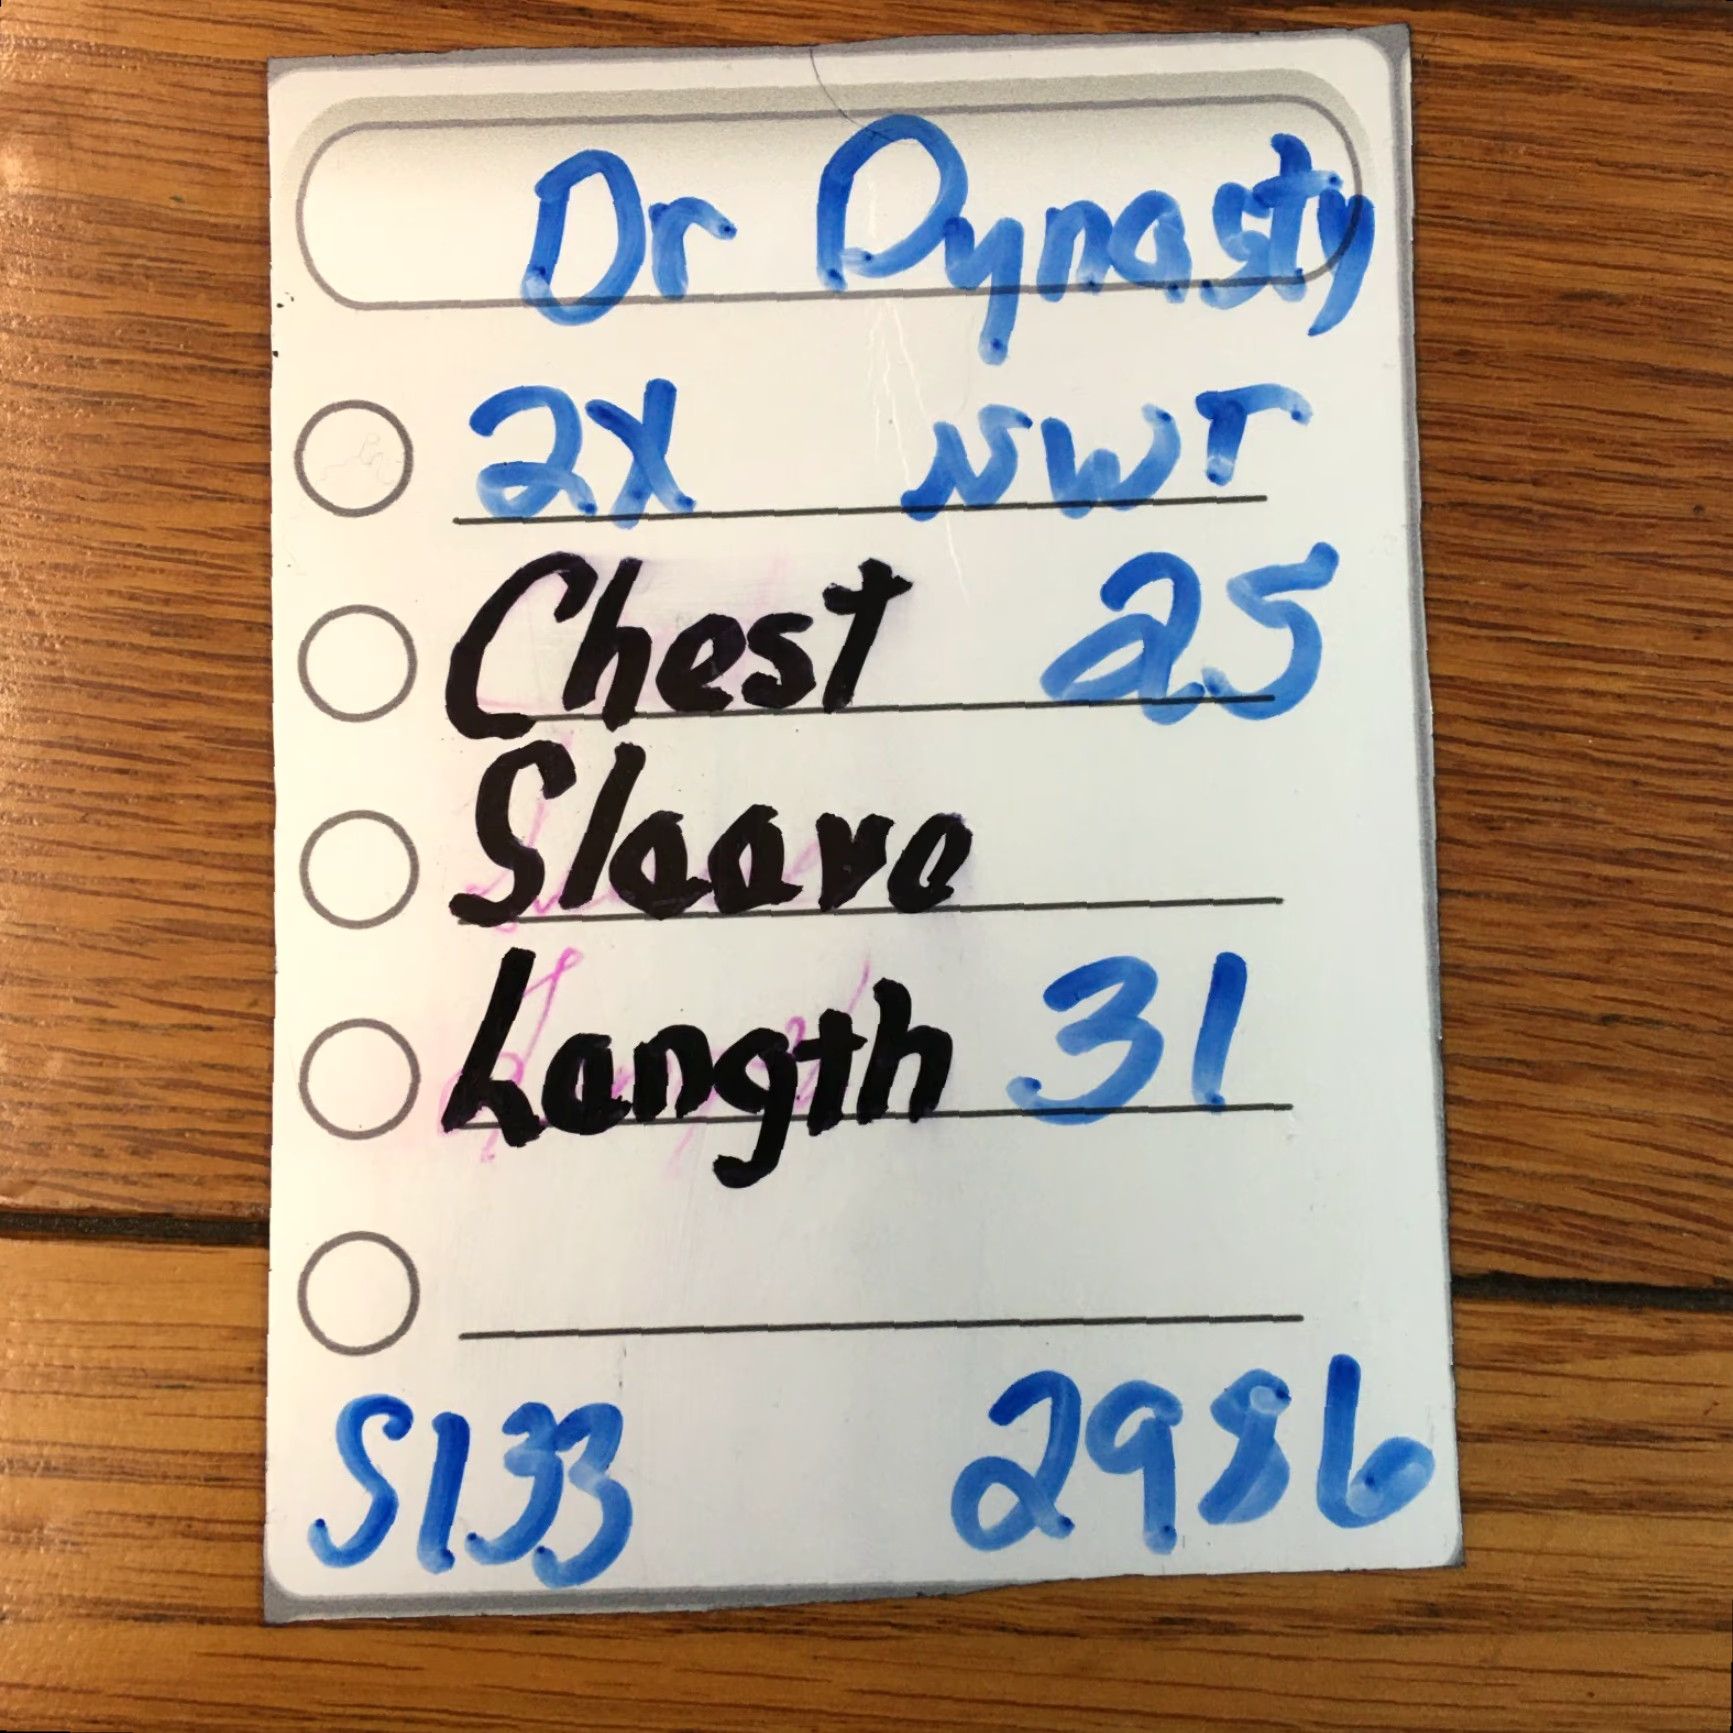 Dr Dynasty
2X NWT
Chest 25
Sleeve
Length 31
S133 2986